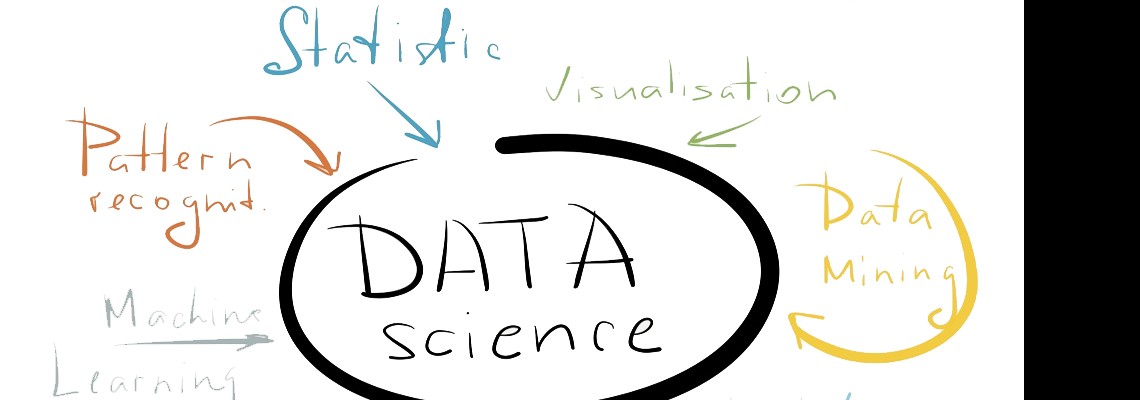 Statistic
Visualisation
Pattern
recognit.
Data
Mining
DATA
science
Machine
Learning